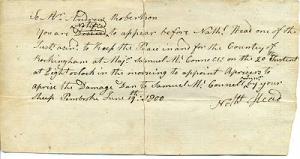 To Mr Andrew Robertson
You are Notified to appear before Nathl Head one of the
Justices to keep the Peace in and for the County of
Rockingham at Majr Samuel Mc Connels on the 20th Instant
at Eight o'clock in the morning to appoint Aprisers to
aprise the Damage Don to Samuel Mc Connel by your
Sheep Pembroke June 19th 1800
Nathl Head